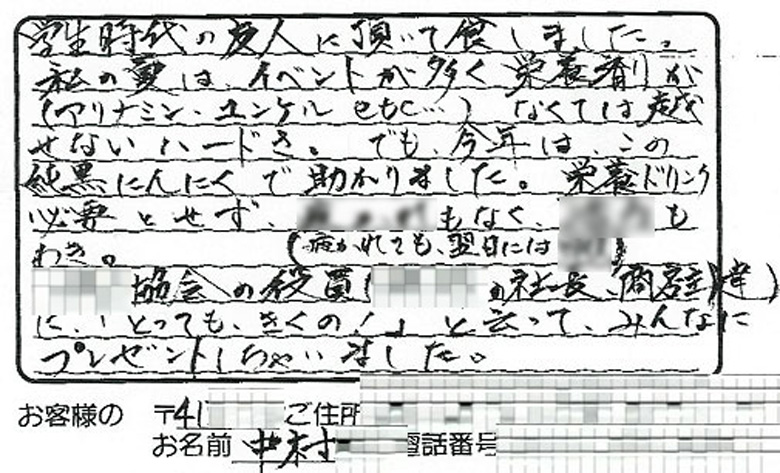 学生時代の友人に頂いて食しました。
私の夏は、イベントが多く栄養剤が
(アリナミン、ユンケル etc…) なくては越
せないハードさ。でも、今年は、この
純黒にんにくで助かりました。栄養ドリンク
必要とせず、もなく、も
わき。(疲かれても、翌日には
協会の役員(の社長、商店主達)
に、「とっても、きくの!」と云って、みんなに
プレゼントしちゃいました。
お客様の 〒41 ご住所
お名前 中村 電話番号